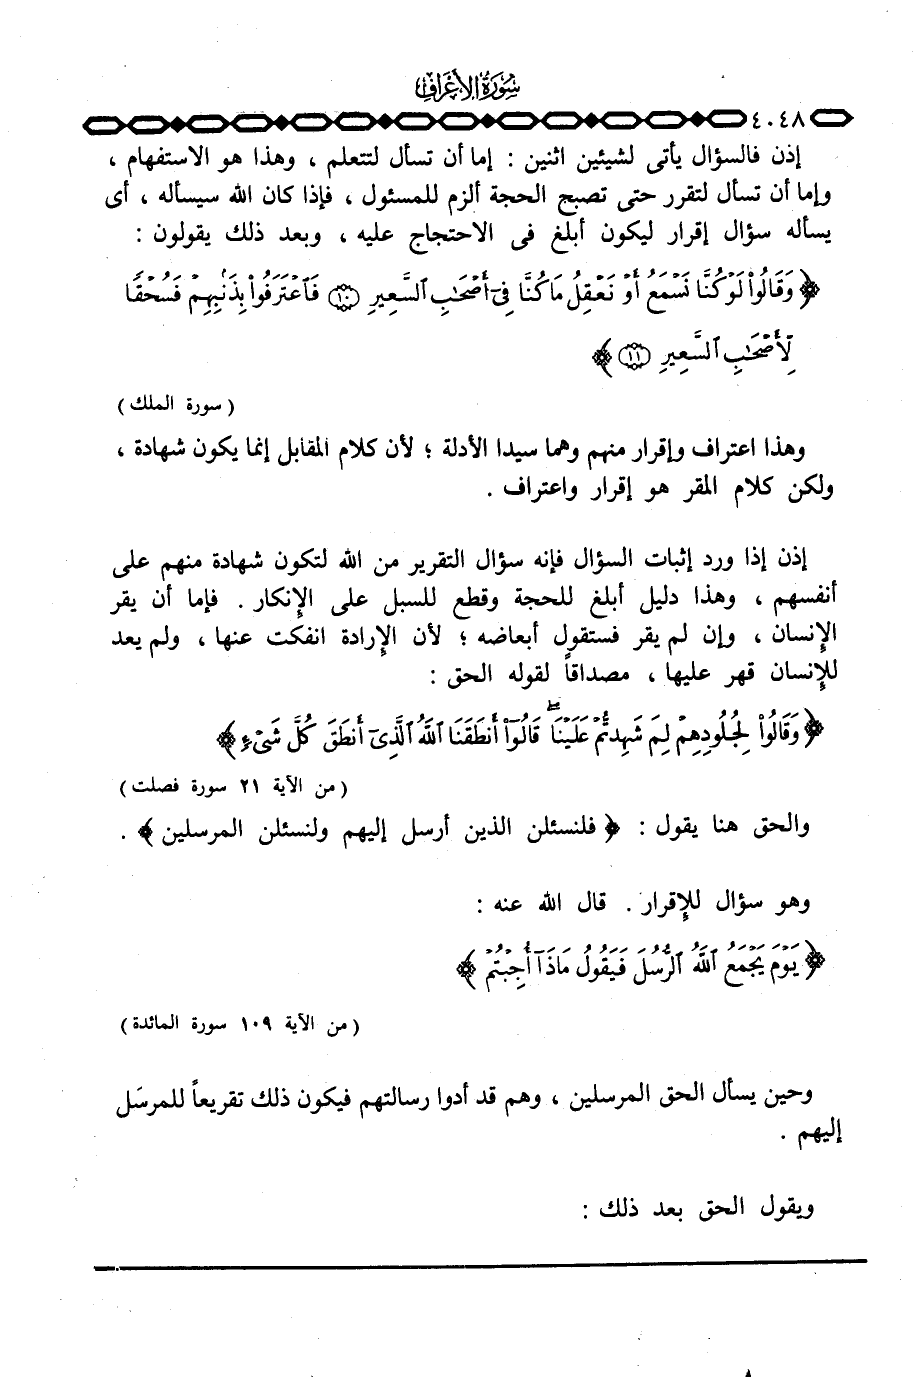 سورة الأعراف
٤٠٤٨
إذن فالسؤال يأتى لشيئين اثنين : إما أن تسأل لتتعلم ، وهذا هو الاستفهام ،
وإما أن تسأل لتقرر حتى تصبح الحجة ألزم للمسئول ، فإذا كان الله سيسأله ، أى
يسأله سؤال إقرار ليكون أبلغ فى الاحتجاج عليه ، وبعد ذلك يقولون :
﴿ وَقَالُوا۟ لَوْ كُنَّا نَسْمَعُ أَوْ نَعْقِلُ مَا كُنَّا فِىٓ أَصْحَـٰبِ ٱلسَّعِيرِ ١٠ فَٱعْتَرَفُوا۟ بِذَنۢبِهِمْ فَسُحْقًا
لِّأَصْحَـٰبِ ٱلسَّعِيرِ ١١ ﴾
( سورة الملك )
وهذا اعتراف وإقرار منهم وهما سيدا الأدلة ؛ لأن كلام المقابل إنما يكون شهادة ،
ولكن كلام المقر هو إقرار واعتراف .
إذن إذا ورد إثبات السؤال فإنه سؤال التقرير من الله لتكون شهادة منهم على
أنفسهم ، وهذا دليل أبلغ للحجة وقطع للسبل على الإنكار . فإما أن يقر
الإنسان ، وإن لم يقر فستقول أبعاضه ؛ لأن الإرادة انفكت عنها ، ولم يعد
للإنسان قهر عليها ، مصداقاً لقوله الحق :
﴿ وَقَالُوا۟ لِجُلُودِهِمْ لِمَ شَهِدتُّمْ عَلَيْنَا ۖ قَالُوٓا۟ أَنطَقَنَا ٱللَّهُ ٱلَّذِىٓ أَنطَقَ كُلَّ شَىْءٍ ﴾
( من الآية ٢١ سورة فصلت )
والحق هنا يقول : ﴿ فلنسئلن الذين أرسل إليهم ولنسئلن المرسلين ﴾ .
وهو سؤال للإقرار . قال الله عنه :
﴿ يَوْمَ يَجْمَعُ ٱللَّهُ ٱلرُّسُلَ فَيَقُولُ مَاذَآ أُجِبْتُمْ ﴾
( من الآية ١٠٩ سورة المائدة )
وحين يسأل الحق المرسلين ، وهم قد أدوا رسالتهم فيكون ذلك تقريعاً للمرسَل
إليهم .
ويقول الحق بعد ذلك :